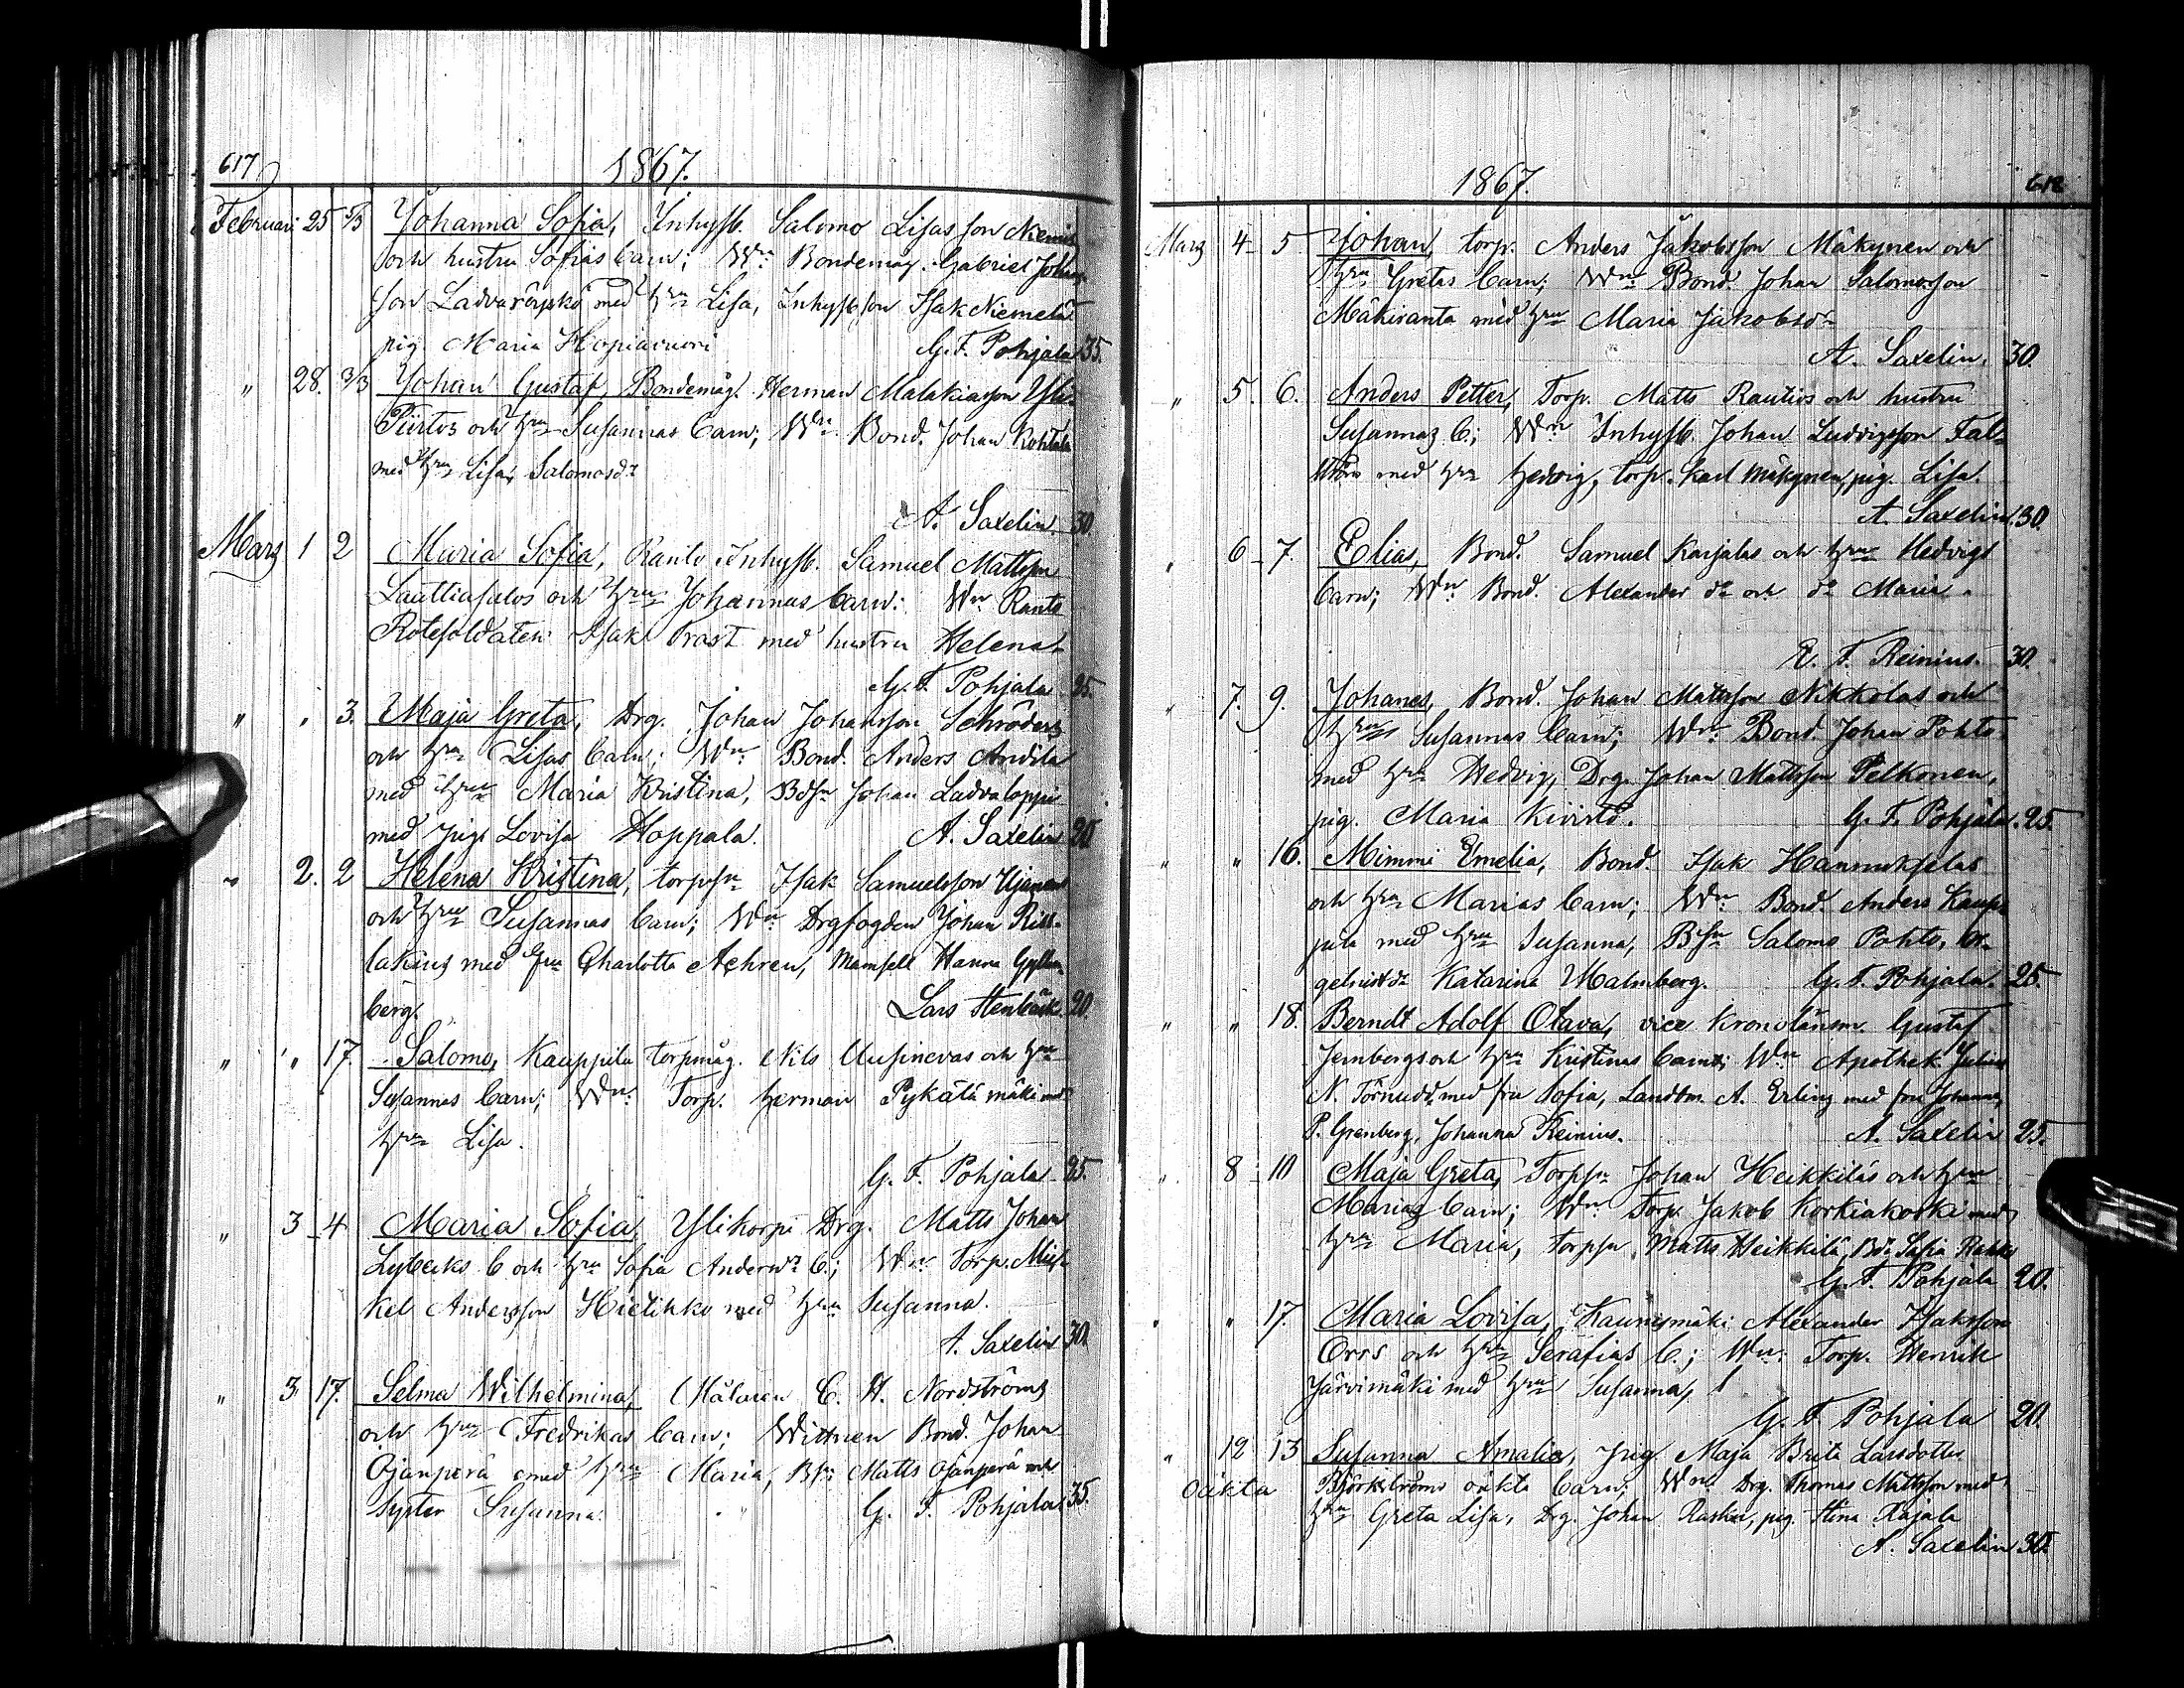 617
1867.
Februari 25 3/3 Johanna Sofia, Inhysb. Salomo Lisasson
och hustru Sofias barn; Wn: Bondemåg. Gabriel Johans
son med hru Lisa, Inhysb son Isak Niemelä
pig. Maria Hopiavuori G. F. Pohjala 35.
" 28. 3/3 Johan Gustaf, Bondemåg. Herman Malakiasson Yli-
Piirtos och hru Susannas barn; Wn: Bond. Johan Kohtala
med hru Lisa Salomosdr
A. Saxelin. 30.
Mars 1 2 Maria Sofia, Ranto Inhysb. Samuel Mattsson
och hru Johannas barn: Wn Ranto
Rotesoldaten Isak Brast med hustru Helena
G. F. Pohjala 25.
" " 3. Maja Greta, Drg. Johan Johansson Schröders
och hru Lisas barn; Wn Bond. Anders Andila
med hru Maria Kristina, Bdsn Johan Ladvaloppi
med pig Lovisa Hoppala. A. Saxelin 20
" 2. 2 Helena Kristina, torpsn Isak Samuelsson
och hru Susannas barn; Wn Drgfogden Johan Rist-
lakius med fru Charlotta Achren, Mamsell Hanna Gyllen-
berg. Lars Stenbäck. 20.
" " 17. Salomo, Kauppila torpmåg. Nils Uusinevas och hru
Susannas barn; Wn: Torp. Herman Pykälämäki med
hru Lisa.
G. F. Pohjala 25.
" 3 4 Maria Sofia, Ylikorpi Drg. Matts Johan
Lybecks b och hru Sofia Andersdr b.; Wn: Torp. Mic-
kel Andersson Hietikko med hru Susanna.
A. Saxelin 30.
" 3 17. Selma Wilhelmina, Målaren C. H. Nordströms
och hru Fredrikas barn; Wittnen Bond. Johan
Ojanperä med hru Maria, Bsn Matts Ojanperä och
syster Susanna. G. F. Pohjala 35.
1867.
618
Mars 4 5 Johan, torp. Anders Jakobsson Mäkynen och
hru Gretas barn; Wn: Bond. Johan Salomosson
Mäkiranta med hru Maria Jakobsdr
A. Saxelin. 30.
" 5. 6. Anders Petter, Torp. Matts Rautios och hustru
Susannas b.; Wn Inhysb. Johan Ludvigsson Fal-
ström med hru Hedvig, torp. Karl Mäkynen, pig. Lisa.
A. Saxelin 30.
" 6 7. Elias, Bond. Samuel Karjalas och hru Hedvigs
barn; Wn: Bond. Alexander do och do Maria.
E. F. Reinius. 30.
" 7. 9. Johanes, Bond. Johan Mattsson Nikkolas och
hrus Susannas barn; Wn: Bond. Johan Pohto
med hru Hedvig, Drg. Johan Mattsson Pelkonen,
pig. Maria Kivistö. G. F. Pohjala. 25.
" " 16. Mimmi Emelia, Bond. Isak Hannukselas
och hru Marias barn; Wn: Bond. Anders Kaup-
pila med hru Susanna, Bsn Salomo Pohto, Or-
gelnistdr Katarina Malmberg. G. F. Pohjala. 25.
" " 18. Berndt Adolf Olava, vice Kronolänsm. Gustaf
Jernbergs och hru Kristinas barn; Wn Apothek.
N. Törnudd med fru Sofia, Landtm. A. Erling med fru Johanna,
P. Grenberg, Johanna Reinius. A. Saxelin 25.
" 8 10 Maja Greta, Torpsn Johan Heikkiläs och hru
Marias barn; Wn: Torp. Jakob Korkiakoski med
hru Maria, torpsn Matts Heikkilä, Bdr Sofia
G. F. Pohjala 20.
" " 17. Maria Lovisa, Kaunismäki Alexander Isaksson
Orrs och hru Serafias b.; Wn: Torp. Henrik
Järvimäki med hru Susanna,
G. F. Pohjala 20.
" 12 13 Susanna Amalia, Pig. Maja Brita Larsdotter
Oäkta Björkströms oäkta barn; Wn: Drg. Thomas Mattsson med
hru Greta Lisa, Drg. Johan Rasku, pig. Stina Rajala
A. Saxelin 30.